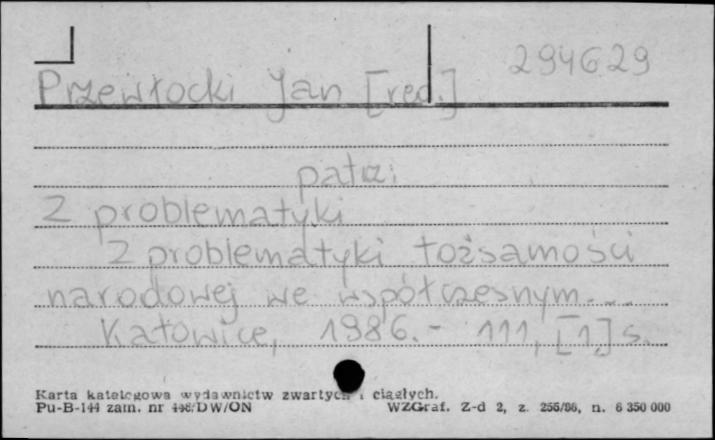 294629
Przewłocki Jan [red.]
patrz:
Z problematyki
Z problematyki tożsamości
narodowej we współczesnym...
Katowice, 1986.- 111, [1] s.
Karta katalogowa wydawnictw zwartych i ciągłych.
Pu-B-144 zam. nr DW/ON WZGraf. Z-d 2, z. 255/86, n. 6 350 000